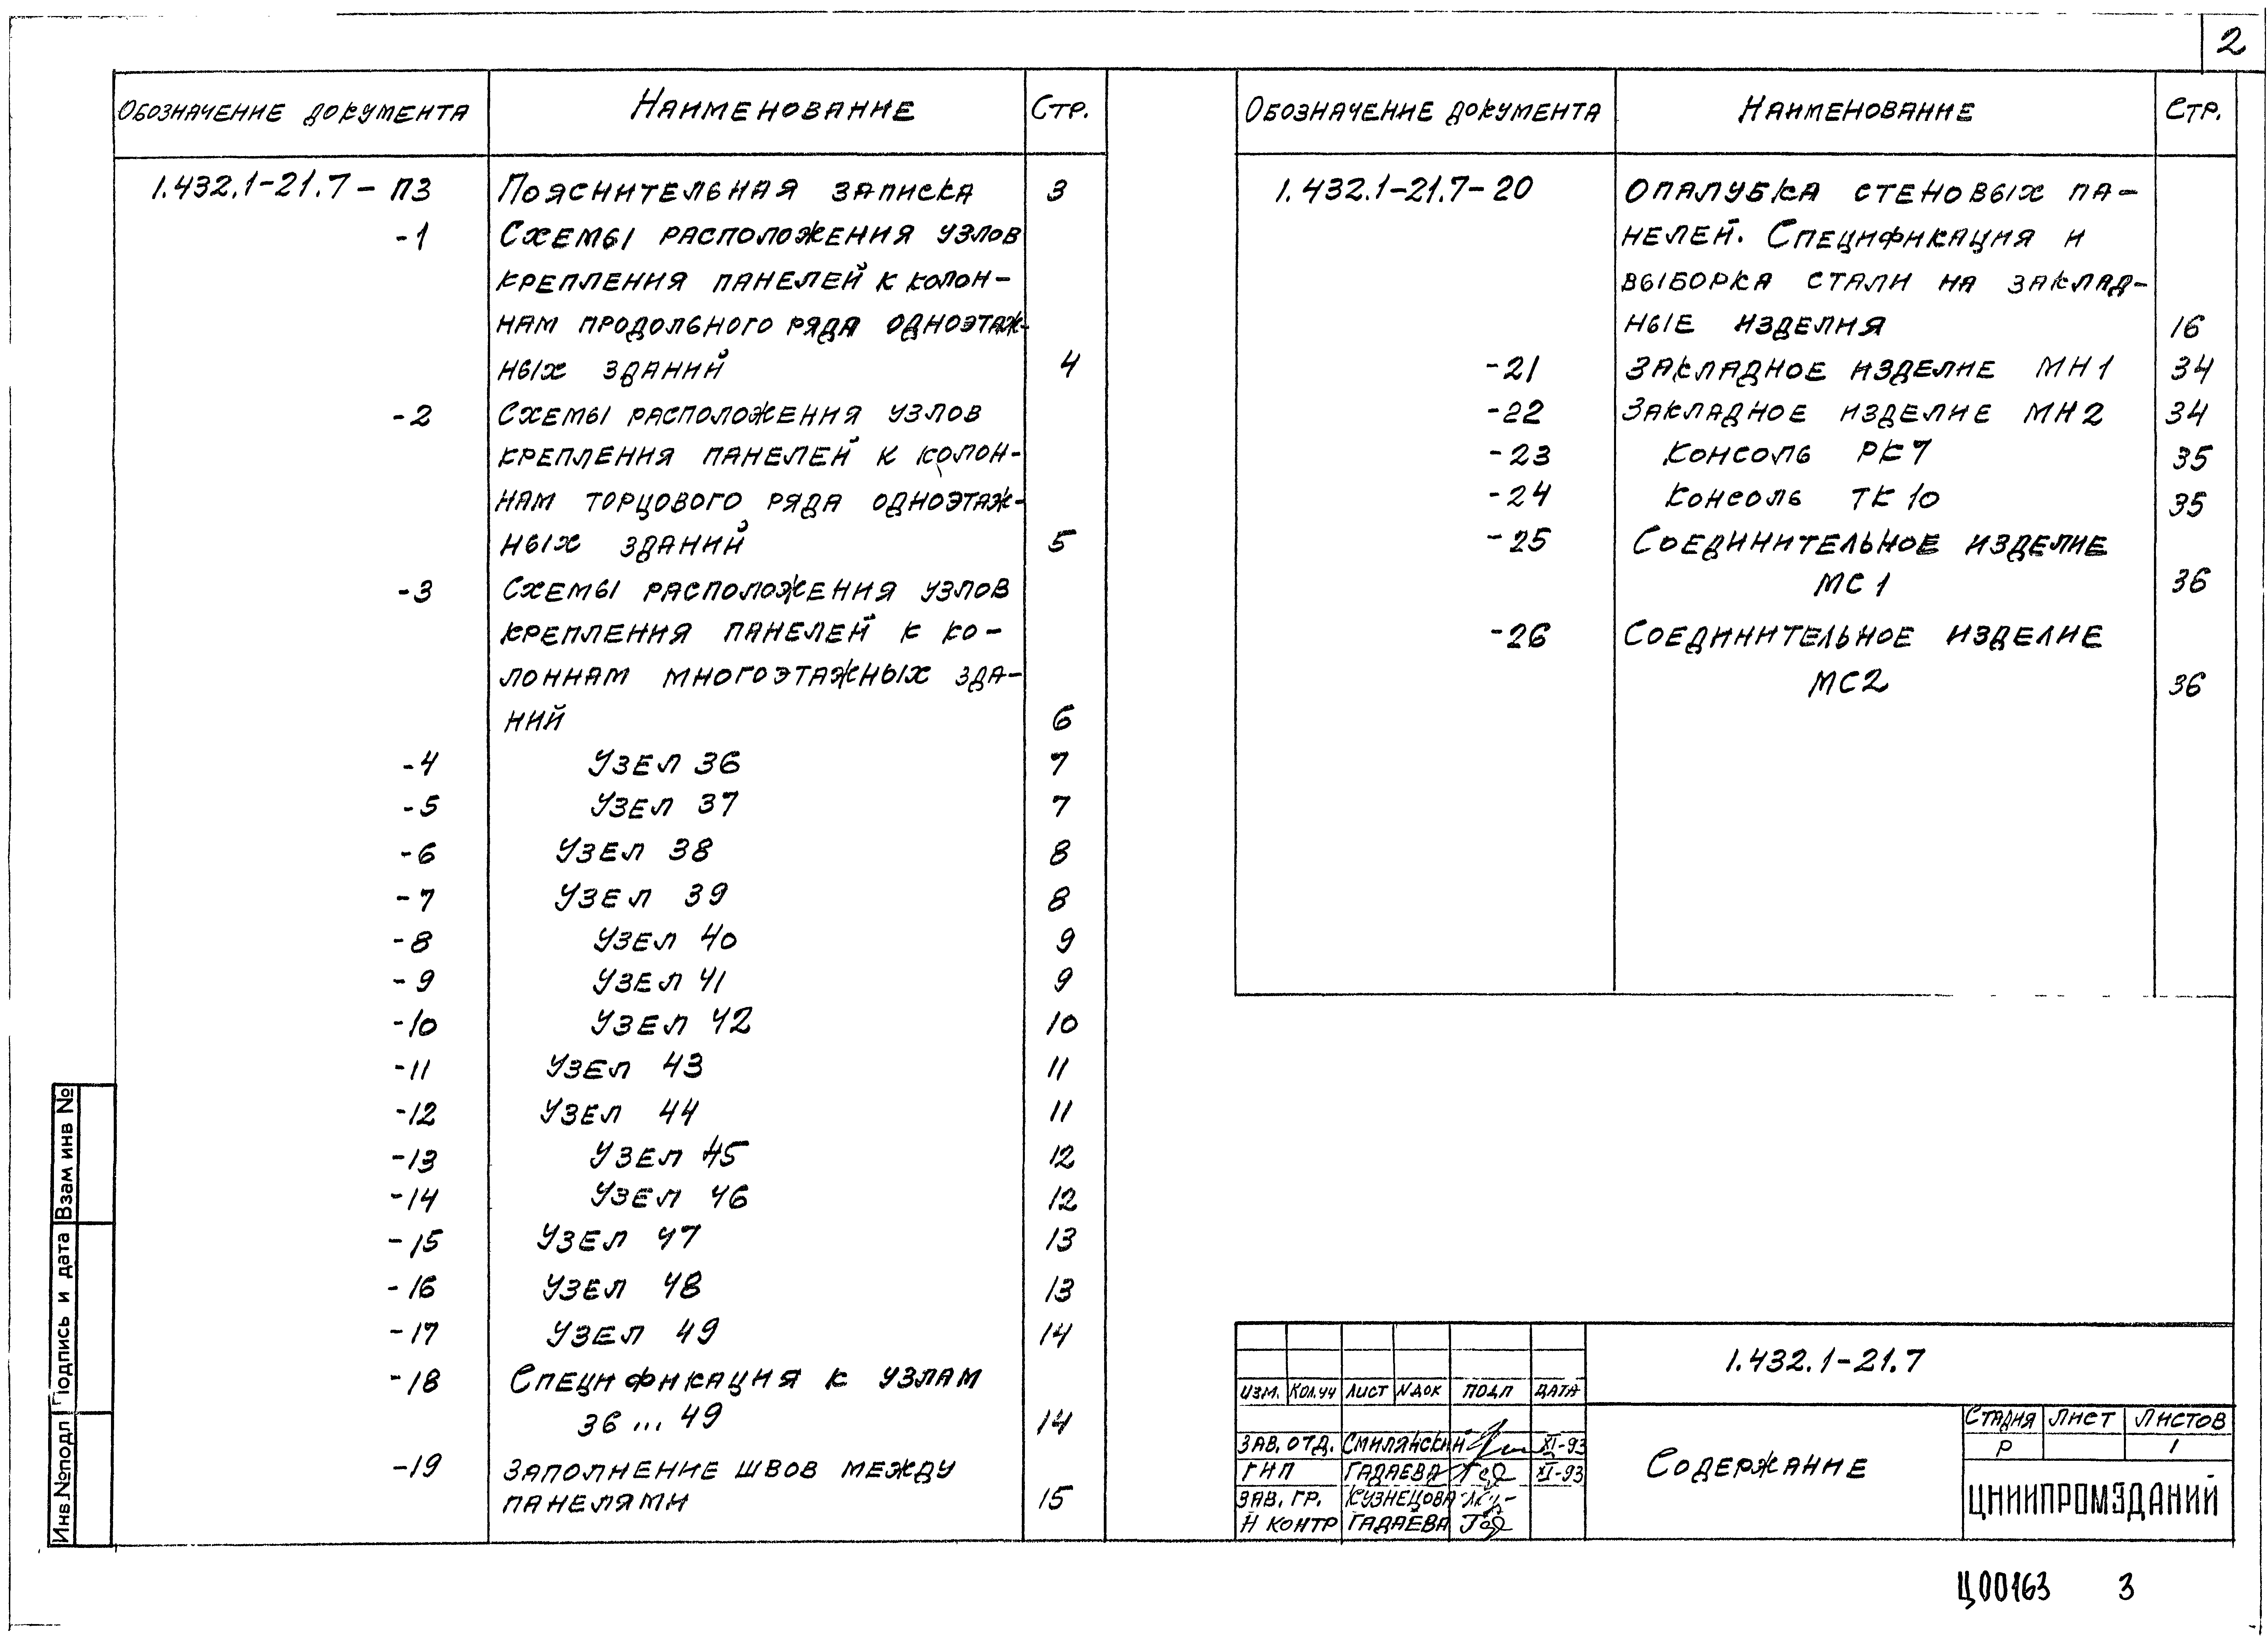 2
Обозначение документа Наименование Стр.
1.432.1-21.7-ПЗ Пояснительная записка 3
-1 Схемы расположения узлов
крепления панелей к колон-
нам продольного ряда одноэтаж-
ных зданий 4
-2 Схемы расположения узлов
крепления панелей к колон-
нам торцового ряда одноэтаж-
ных зданий 5
-3 Схемы расположения узлов
крепления панелей к ко-
лоннам многоэтажных зда-
ний 6
-4 Узел 36 7
-5 Узел 37 7
-6 Узел 38 8
-7 Узел 39 8
-8 Узел 40 9
-9 Узел 41 9
-10 Узел 42 10
-11 Узел 43 11
-12 Узел 44 11
-13 Узел 45 12
-14 Узел 46 12
-15 Узел 47 13
-16 Узел 48 13
-17 Узел 49 14
-18 Спецификация к узлам
36 ... 49 14
-19 Заполнение швов между
панелями 15
Обозначение документа Наименование Стр.
1.432.1-21.7-20 Опалубка стеновых па-
нелей. Спецификация и
выборка стали на заклад-
ные изделия 16
-21 Закладное изделие МН1 34
-22 Закладное изделие МН2 34
-23 Консоль РК7 35
-24 Консоль ТК10 35
-25 Соединительное изделие
МС1 36
-26 Соединительное изделие
МС2 36
Взам инв №
Подпись и дата
Инв.№подл
1.432.1-21.7
Изм. Кол.уч Лист Nдок Подп Дата
Зав. отд. Смилянский XI-93
ГИП Гадаева XI-93
Зав. гр. Кузнецова
Н контр Гадаева
Содержание
Стадия Лист Листов
Р 1
ЦНИИПРОМЗДАНИЙ
Ц00163 3